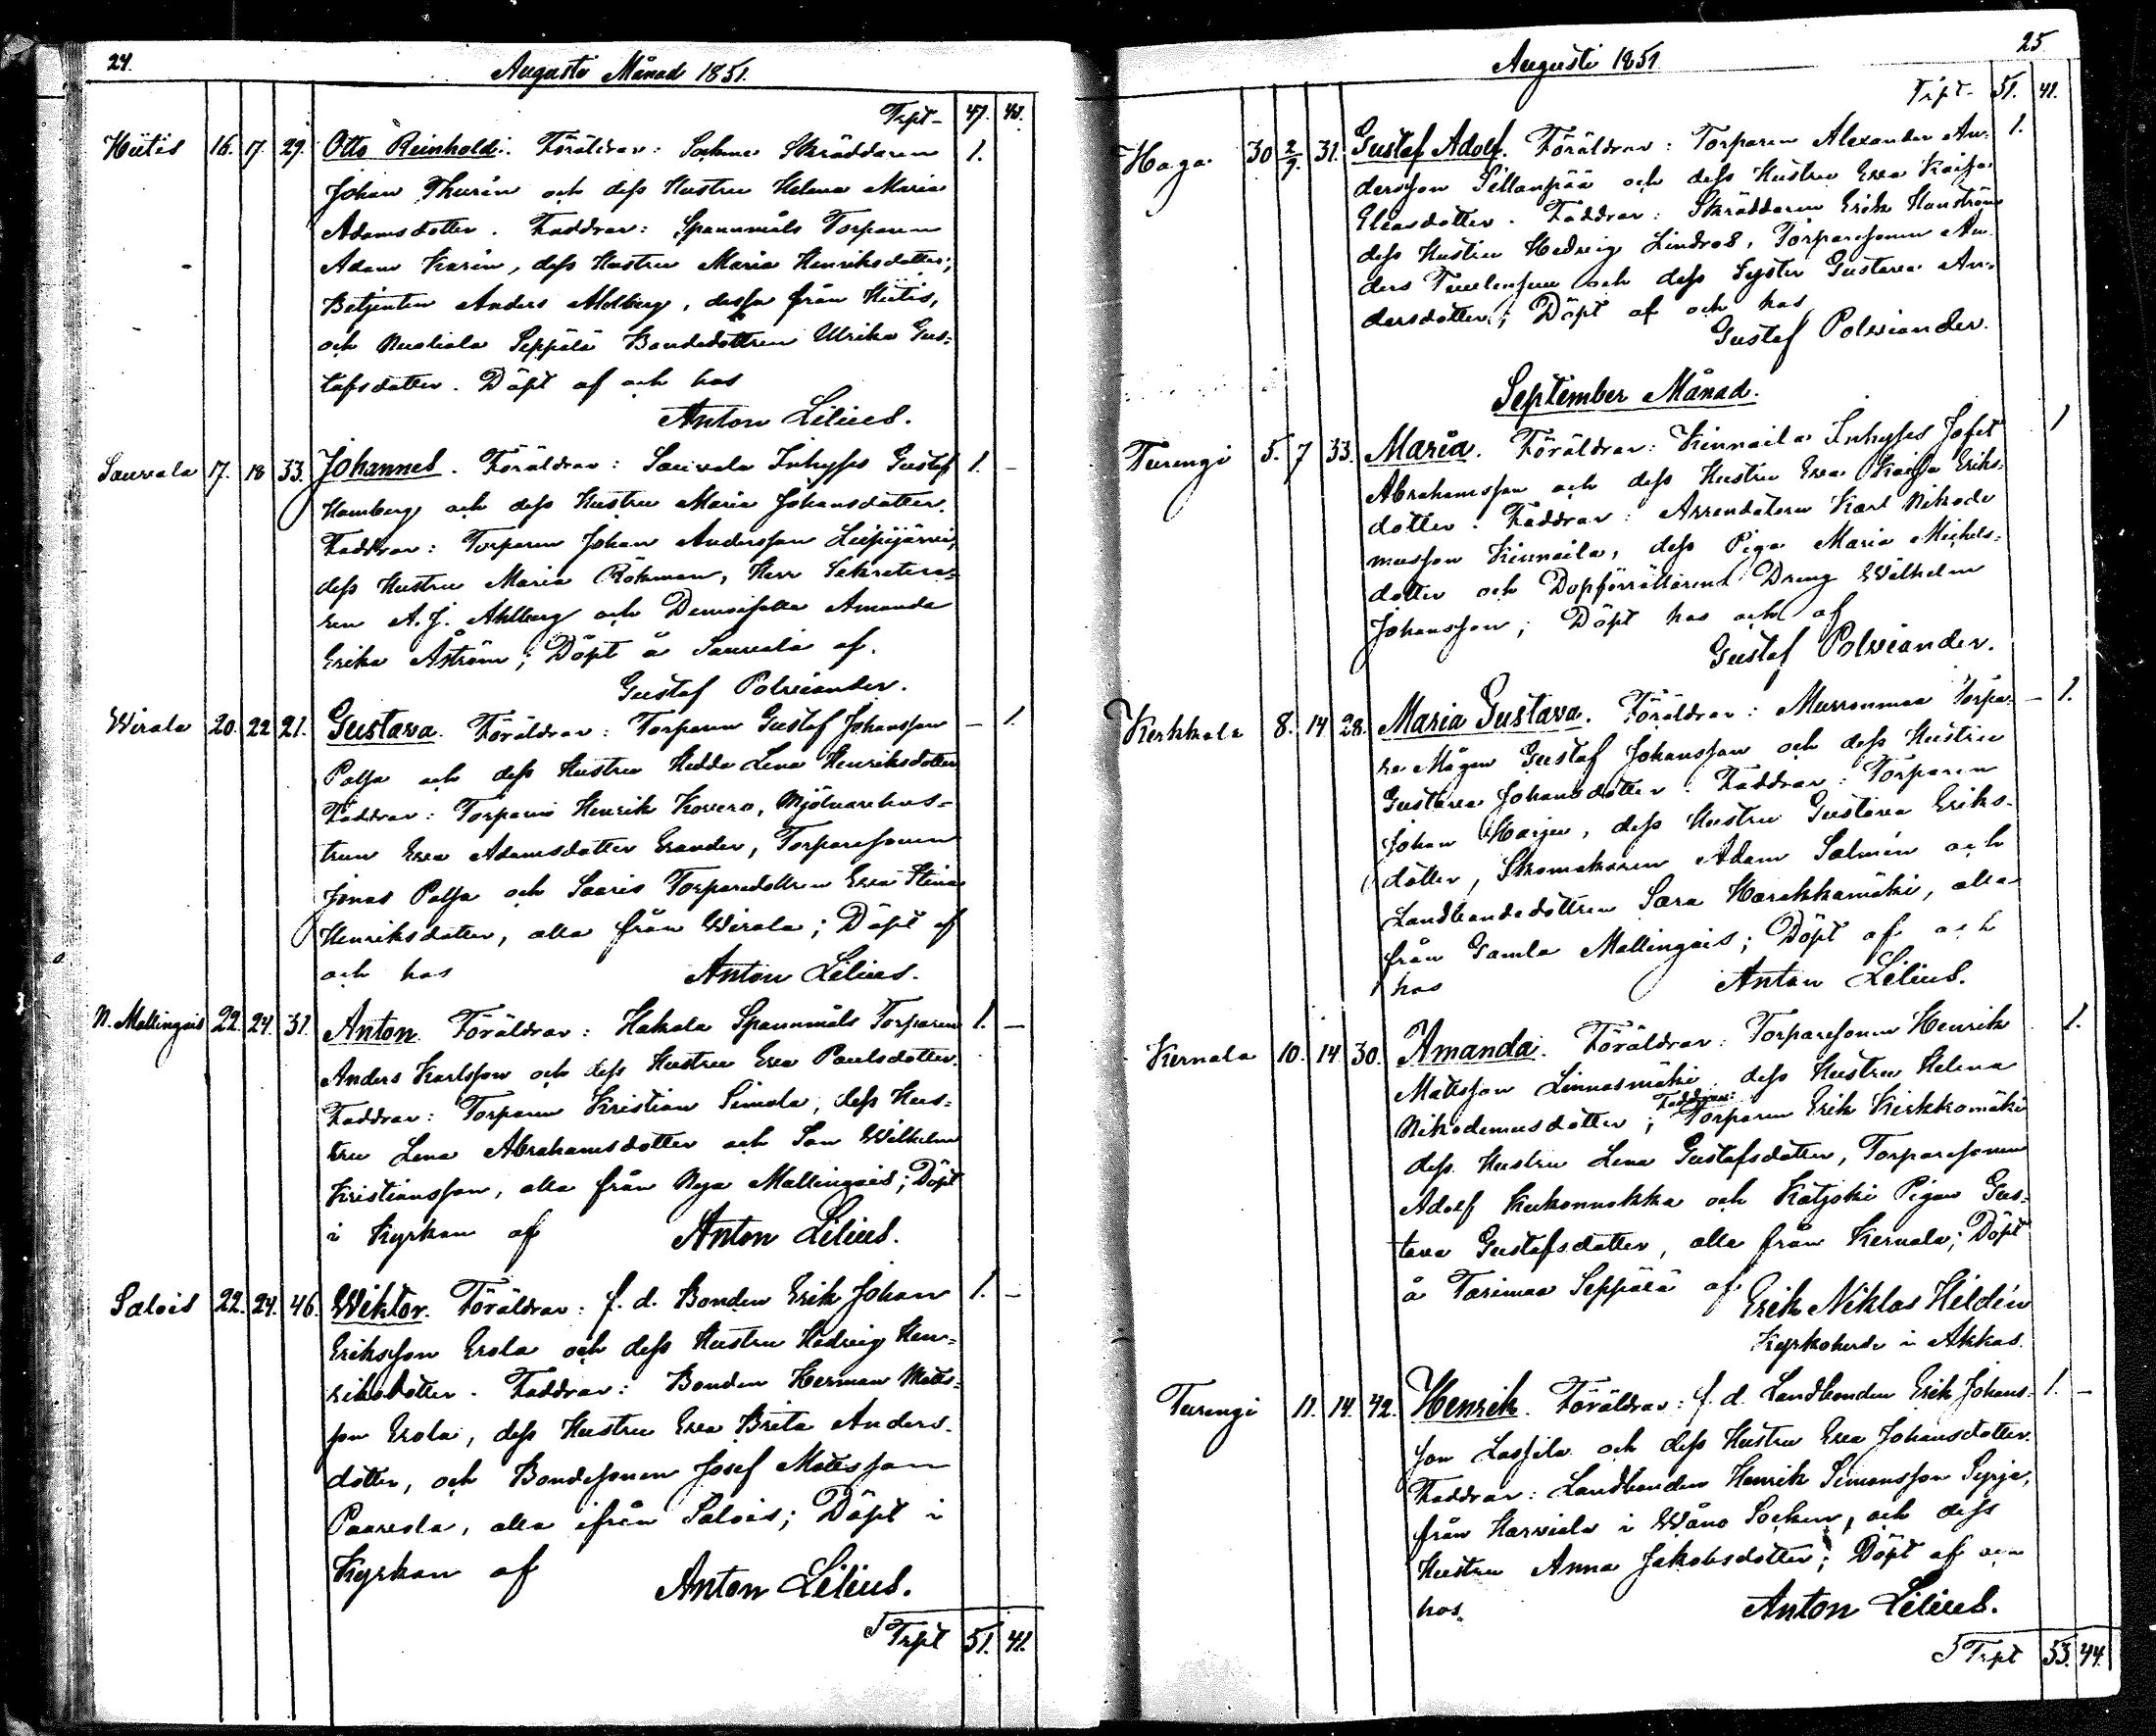 24.
Augusti Månad 1851.
Trpt- 47. 40.
Hiitis 16. 17. 29. Otto Reinhold. Föräldrar: Sockne Skräddaren 1.
Johan Thurin och dess Hustru Helena Maria
Adamsdotter. Faddrar: Spannmåls Torparen
Adam Karin, dess Hustru Maria Henriksdotter;
Betjenten Anders Ahlberg, dessa från Hiitis,
och Seppälä Bondedottren Ulrika Gus-
tafsdotter. Döpt af och hos
Anton Lilius.
Sauvala 17. 18 33. Johannes. Föräldrar: Sauvala Inhyses Gustaf 1. –
Hamberg och dess Hustru Maria Johansdotter.
Faddrar: Torparen Johan Andersson Leipijärvi,
dess Hustru Maria Rökman, Herr Sekretera-
ren A. J. Ahlberg och Demoiselle Amanda
Erika Åström; Döpt å Sauvala af.
Gustaf Polviander.
Wirala 20. 22 21. Gustava. Föräldrar: Torparen Gustaf Johansson – 1.
Palja och dess Hustru Hedda Lena Henriksdotter
Faddrar: Torparen Henrik Kovero, Mjölnarehus-
trun Eva Adamsdotter Grander, Torparesonen
Jonas Palja och Saaris Torparedottren Eva Stina
Henriksdotter, alla från Wirala; Döpt af
och hos Anton Lilius.
N. Mallingais 22. 24. 31. Anton. Föräldrar: Hakala Spannmåls Torparen 1. –
Anders Karlsson och dess Hustru Eva Paulsdotter.
Faddrar: Torparen Kristian Simola, dess Hus-
tru Lena Abrahamsdotter och Son Wilhelm
Kristiansson, alla från Nya Mallingais; Döpt
i Kyrkan af Anton Lilius.
Salois 22. 24. 46. Wiktor. Föräldrar: f. d. Bonden Erik Johan 1. –
Eriksson Erola och dess Hustru Hedvig Hen-
riksdotter. Faddrar: Bonden Herman Matts-
son Erola, dess Hustru Eva Brita Anders-
dotter, och Bondesonen Josef Mattsson
Paavola, alla ifrån Salois; Döpt i
Kyrkan af Anton Lilius.
Trpt 51. 41.
25
Augusti 1851
Trpt- 51. 41.
Haga 30 2/9. 31. Gustaf Adolf. Föräldrar: Torparen Alexander An- 1.
dersson Sillanpää och dess Hustru Eva Kaisa
Eliasdotter. Faddrar: Skräddaren Erik Hanström
dess Hustru Hedvig Lindros, Torparesonen An-
ders och dess Syster Gustava An-
dersdotter; Döpt af och hos
Gustaf Polviander.
September Månad.
Turengi 5. 7 33. Maria. Föräldrar: Kinnaila Inhyses Jofet 1
Abrahamsson och dess Hustru Eva Kaisa Eriks-
dotter. Faddrar: Arrendatorn Karl Nikode
musson Kinnaila, dess Piga Maria Michels-
dotter och Dopförrättarens Dreng Wilhelm
Johansson; Döpt hos och af
Gustaf Polviander.
Kerkkala 8. 14 28. Maria Gustava. Föräldrar: Murronmaa Torpa- – 1.
re Mågen Gustaf Johansson och dess Hustru
Gustava Johansdotter. Faddrar: Torparen
Johan Harju, dess Hustru Gustava Eriks-
dotter, Skomakaren Adam Salmin och
Landbondedottren Sara Harakkamäki, alla
från Gamla Mallingais; Döpt af och
hos Anton Lilius.
Kernala 10. 14 30. Amanda. Föräldrar: Torparesonen Henrik 1.
Mattsson Linnasmäki dess Hustru Helena
Nikodemusdotter; Faddrar: Torparen Erik Kirkkomäki
dess Hustru Lena Gustafsdotter, Torparesonen
Adolf Kukonnokka och Kätjoki Pigan Gus-
tava Gustafsdotter, alla från Kernala; Döpt
å Tarimaa Seppälä af
Erik Niklas Hildén
Kyrkoherde i Akkas.
Turengi 11. 14. 42. Henrik. Föräldrar: f. d. Landbonden Erik Johans- 1. –
son Lassila och dess Hustru Eva Johansdotter.
Faddrar: Landbonden Henrik Simonsson Syrjä,
från Harviala i Wåno Socken, och dess
Hustru Anna Jakobsdotter; Döpt af och
hos. Anton Lilius.
Trpt 53. 44.